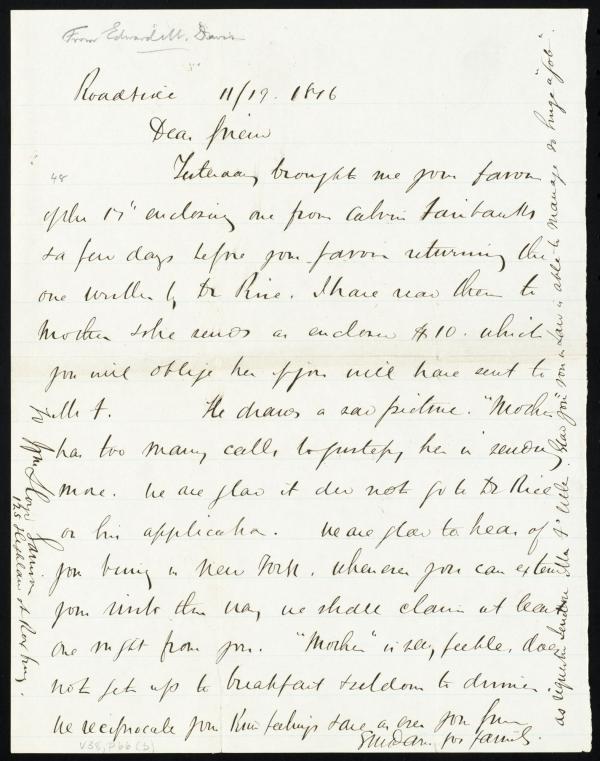 From Edward M. Davis
Roadside 11/19. 1876
Dear friend
48
Yesterday brought me your favor
of the 17" enclosing one from Calvin Fairbanks
& a few days before your favor returning the
one written by Dr Rice. I have read them to
Mother & she sends as enclosed $10. which
you will oblige her if you will have sent to
Mr F. He draws a sad picture. "Mother
has too many calls to justify her in sending
more. We are glad it did not go to Dr Rice
on his application. We are glad to hear of
you being in New York. Whenever you can extend
your visits this way we shall claim at least
one night from you. "Mother" is very feeble, does
not get up to breakfast & seldom to dinner.
We reciprocate your kind feelings & are as ever your friend
EM Davis for family.
V38, P66 (3)
To Wm Lloyd Garrison
125 Highland St Roxbury.
as requested I return Mr F's letter. Glad your son in law is able to manage so huge a "job".